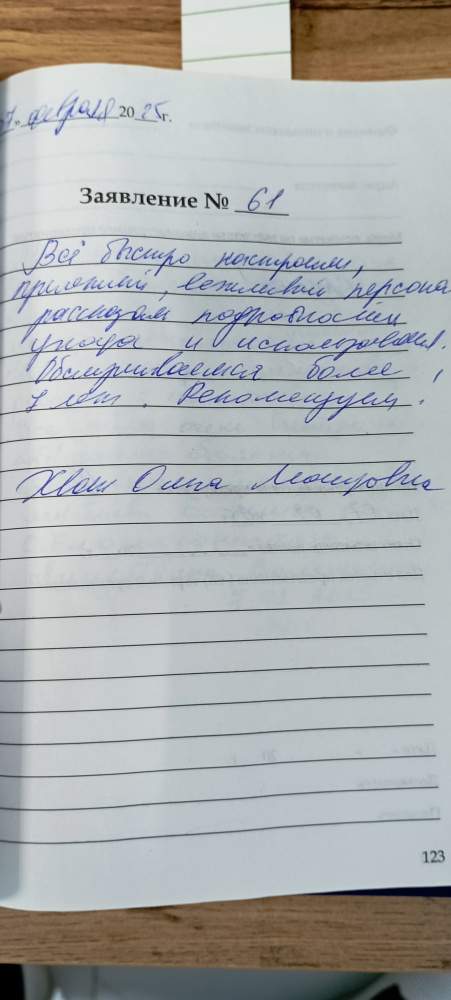 7» февраля 2025г.
Заявление № 61
Всё быстро настроили,
приятный, вежливый персона
рассказали подробности
ухода и использования.
Обслуживаемся более
7 лет. Рекомендуем!
Ольга
123